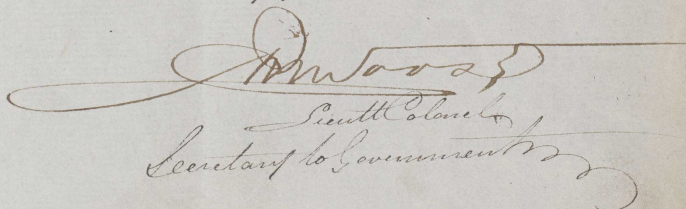 Lieutt Colonel
Secretary to Government